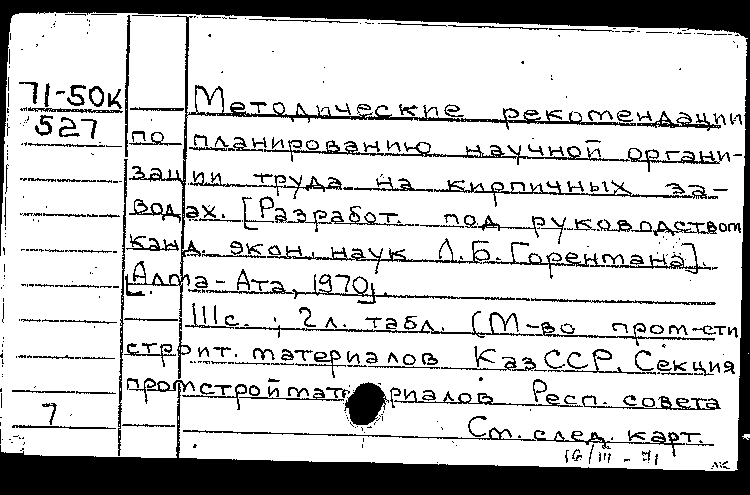 71-50к
527
Методические рекомендации
по планированию научной органи-
зации труда на кирпичных за-
водах. [Разработ. под руководством
канд. экон. наук Л.Б. Горентана].
[Алма-Ата, 1970].
111с.; 2 л. табл. (М-во пром-сти
строит. материалов КазССР. Секция
промстройматериалов Респ. совета
7
См. след. карт.
16/III - 71